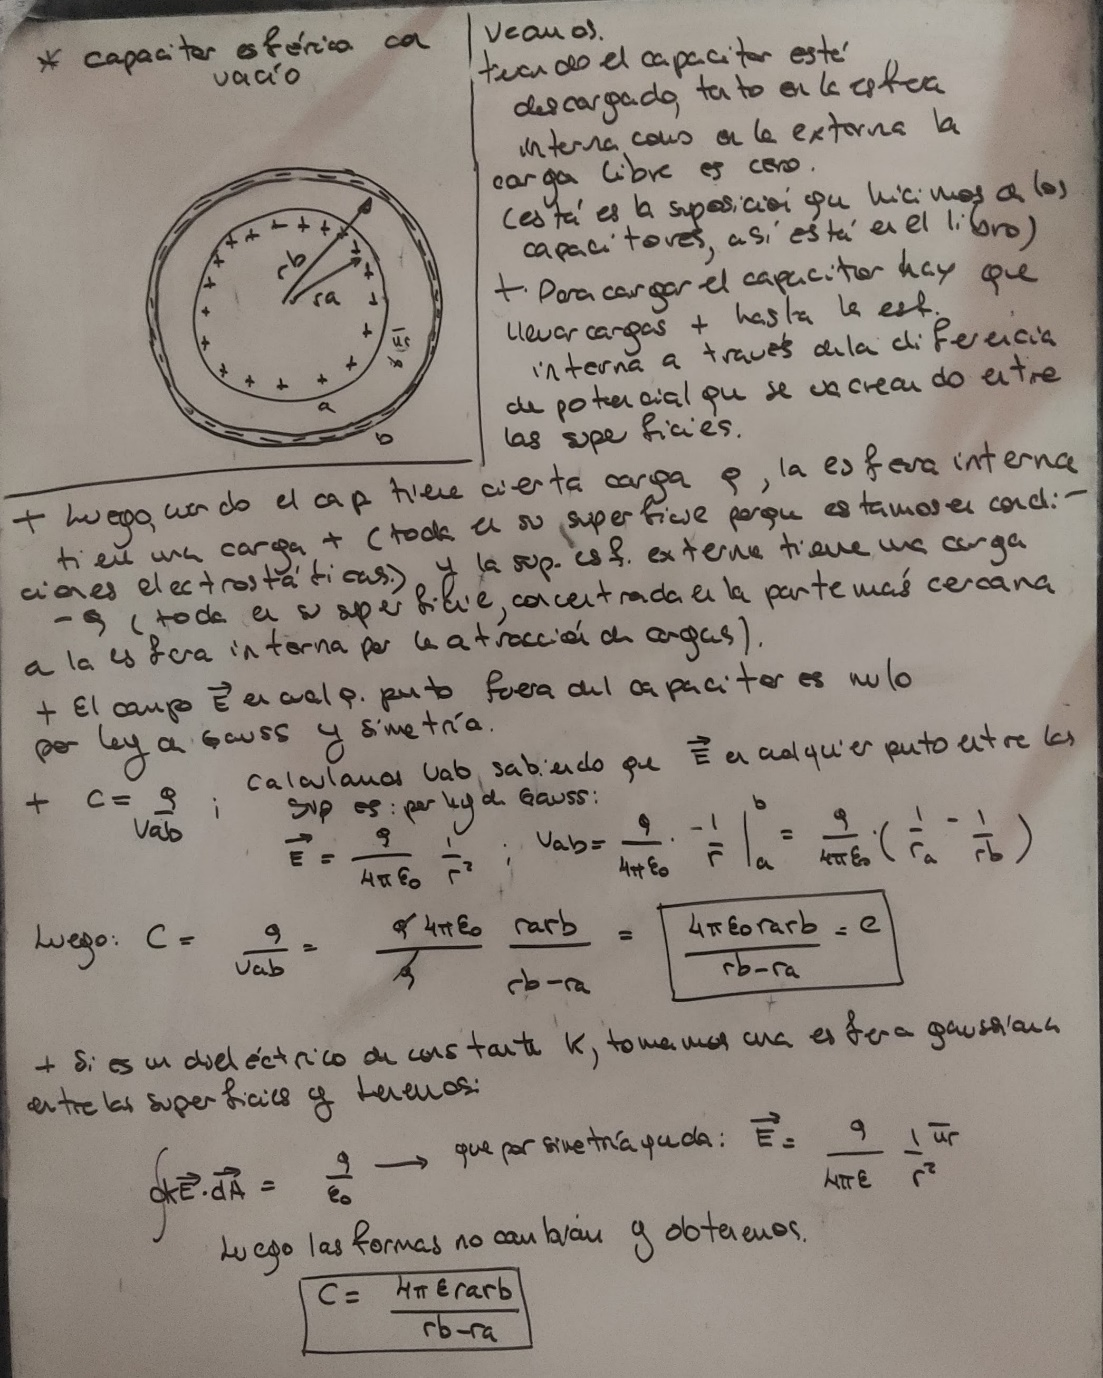 * capacitor esférico con
vacío
rb
ra
ur
a
b
veamos.
+cuando el capacitor esté
descargado, tanto en la esfera
interna como en la externa la
carga libre es cero.
(está es la suposición que hicimos en los
capacitores, así está en el libro)
+. Para cargar el capacitor hay que
llevar cargas + hasta la esf.
interna a través de la diferencia
de potencial que se va creando entre
las superficies.
+ Luego, cuando el cap tiene cierta carga q, la esfera interna
tiene una carga + (toda en su superficie porque estamos en condi-
ciones electrostáticas.) y la sup. esf. externa tiene una carga
-q (toda en su superficie, concentrada en la parte más cercana
a la esfera interna por la atracción de cargas).
+ El campo E⃗ en cualq. punto fuera del capacitor es nulo
por ley de Gauss y simetría.
+ C = q/Vab ; calculamos Vab sabiendo que E⃗ en cualquier punto entre las
sup es: por ley de Gauss:
E⃗ = q/4πε0 1/r² ; Vab = q/4πε0 · -1/r |ab = q/4πε0 · (1/ra - 1/rb)
Luego: C = q/Vab = q 4πε0/q rarb/rb-ra = 4πε0rarb/rb-ra = C
+ Si es un dieléctrico de constante K, tomamos una esfera gaussiana
entre las superficies y tenemos:
∮KE⃗·dA⃗ = q/ε0 → que por simetría queda: E⃗ = q/4πε 1/r² ur
Luego las formas no cambian y obtenemos.
C = 4πεrarb/rb-ra